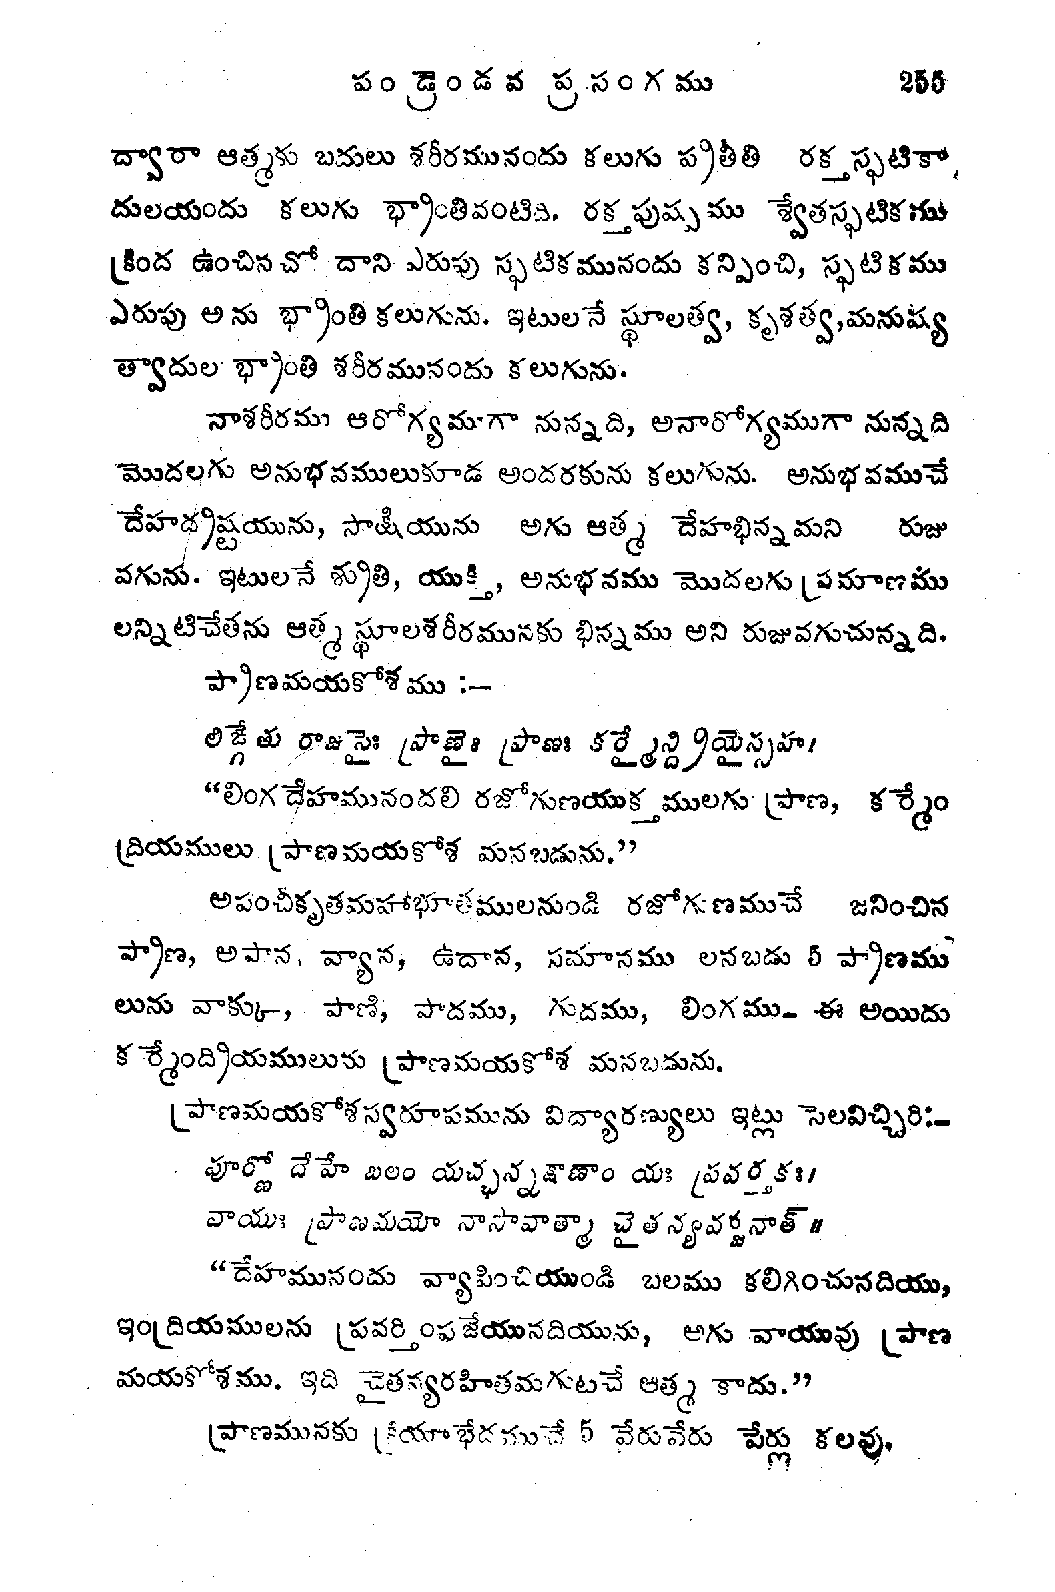 పండ్రెండవ ప్రసంగము 255
ద్వారా ఆత్మకు బదులు శరీరమునందు కలుగు ప్రతీతి రక్తస్ఫటికా
దులయందు కలుగు భ్రాంతివంటిది. రక్తపుష్పము శ్వేతస్ఫటికము
క్రింద ఉంచినచో దాని ఎరుపు స్ఫటికమునందు కన్పించి, స్ఫటికము
ఎరుపు అను భ్రాంతి కలుగును. ఇటులనే స్థూలత్వ, కృశత్వ,మనుష్య
త్వాదుల భ్రాంతి శరీరమునందు కలుగును.
నాశరీరము ఆరోగ్యముగా నున్నది, అనారోగ్యముగా నున్నది
మొదలగు అనుభవములుకూడ అందరకును కలుగును. అనుభవముచే
దేహదృష్టయును, సాక్షియును అగు ఆత్మ దేహభిన్నమని రుజు
వగును. ఇటులనే శ్రుతి, యుక్తి, అనుభవము మొదలగు ప్రమాణము
లన్నిటిచేతను ఆత్మ స్థూలశరీరమునకు భిన్నము అని రుజువగుచున్నది.
ప్రాణమయకోశము :—
లిఙ్గేతు రాజసైః ప్రాణైః ప్రాణః కర్మేన్ద్రియైస్సహ।
“లింగదేహమునందలి రజోగుణయుక్తములగు ప్రాణ, కర్మేం
ద్రియములు ప్రాణమయకోశ మనబడును.”
అపంచీకృతమహాభూతములనుండి రజోగుణముచే జనించిన
ప్రాణ, అపాన, వ్యాన, ఉదాన, సమానము లనబడు 5 ప్రాణము
లును వాక్కు, పాణి, పాదము, గుదము, లింగము- ఈ అయిదు
కర్మేంద్రియములును ప్రాణమయకోశ మనబడును.
ప్రాణమయకోశస్వరూపమును విద్యారణ్యులు ఇట్లు సెలవిచ్చిరి:—
పూర్ణో దేహే బలం యచ్ఛన్నక్షాణాం యః ప్రవర్తకః।
వాయుః ప్రాణమయో నాసావాత్మా చైతన్యవర్జనాత్॥
“దేహమునందు వ్యాపించియుండి బలము కలిగించునదియు,
ఇంద్రియములను ప్రవర్తింపజేయునదియును, అగు వాయువు ప్రాణ
మయకోశము. ఇది చైతన్యరహితమగుటచే ఆత్మ కాదు.”
ప్రాణమునకు క్రియాభేదముచే 5 వేరువేరు పేర్లు కలవు,